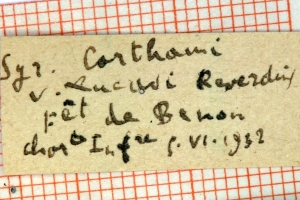 Syr. Carthami
v. Lucasi Reverdin
Fêt de Benon
charte Infre 5.VI.1932